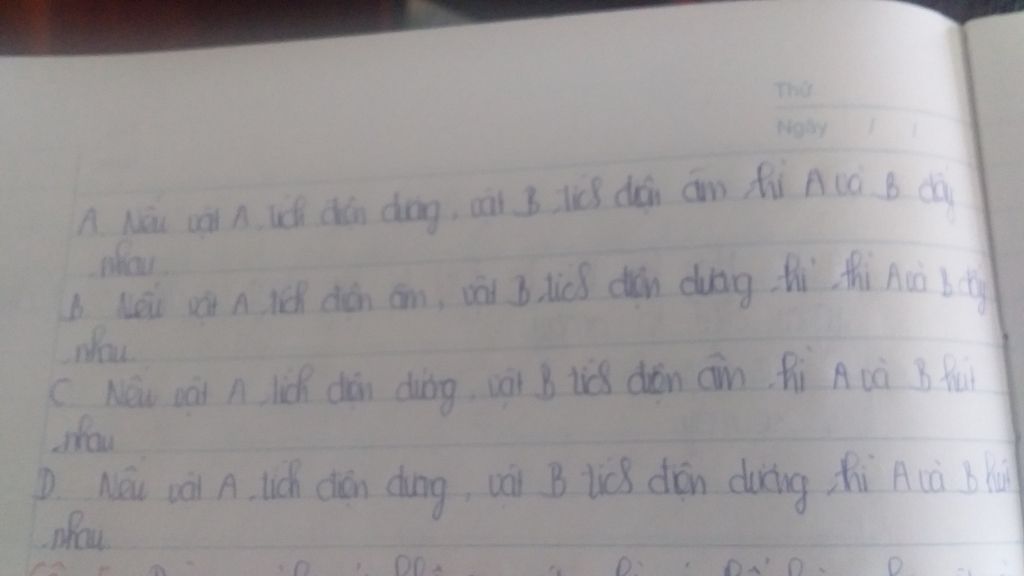 Thứ
Ngày / /
A. Nếu vật A tích điện dương, vật B tích điện âm thì A và B đẩy
nhau
B. Nếu vật A tích điện âm, vật B tích điện dương thì thì A và B đẩy
nhau
C. Nếu vật A tích điện dương, vật B tích điện âm thì A và B hút
nhau
D. Nếu vật A tích điện dương, vật B tích điện dương thì A và B hút
nhau